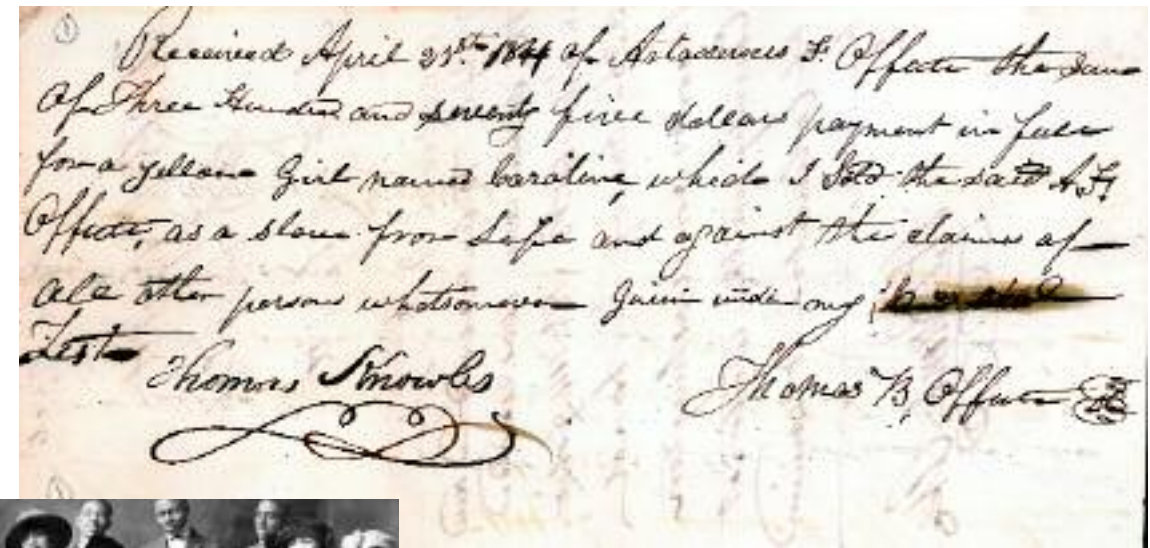 Received April 23rd. 1844 of F. Offutt the sum
of Three Hundred and seventy five dollars payment in full
for a yellow Girl named Caroline, which I Sold the said A. F.
Offutt, as a slave for Life and against the claims of
all other persons whatsomever Given under my
Test
Thomas Knowles
Thomas B. Offutt